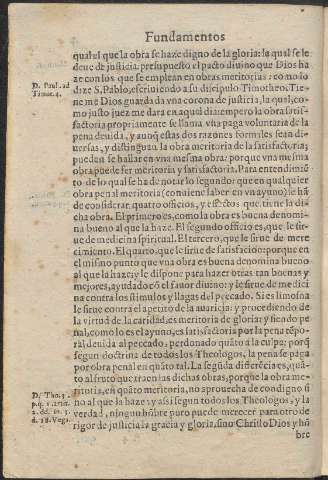 Fundamentos
qual al que la obra se haze digno de la gloria: la qual se le
deue de justicia. presupuesto el pacto diuino que Dios ha
ze con los que se emplean en obras meritorias: como lo
dize S. Pablo, escriuiendo a su discipulo Timotheo. Tie-
D. Paul. ad
Timot. 4.
neme Dios guardada vna corona de justicia, la qual, co-
mo justo juez me dara en aquel dia: empero la obra satis-
factoria propriamente se llama vna paga voluntaria de la
pena deuida, y aunq̃ estas dos razones formales sean di-
uersas, y distinguan la obra meritoria de la satisfactoria;
pueden se hallar en vna mesma obra: porque vna mesma
obra puede ser meritoria y satisfactoria. Para entendimiẽ
to de lo qual se ha de notar lo segundo: que en qualquier
obra penal meritoria (conuiene saber en vn ayuno) se hã
de considerar quatro officios, y effectos que tiene la di-
cha obra. El primero es, como la obra es buena denomi-
na bueno al que la haze. El segundo officio es, que le sir-
ue de medicina spiritual. El tercero, que le sirue de mere
cimiento. El quarto, que le sirue de satisfacion: porque en
el mismo punto que vna obra es buena denomina bueno
al que la haze: y le dispone para hazer otras tan buenas y
mejores, ayudado cõ el fauor diuino: y le sirue de medici
na contra los stimulos y llagas del peccado. Si es limosna
le sirue contra el apetito de la auaricia: y procediendo de
la virtud de la caridad, es meritoria de gloria: y siendo pe
nal, como lo es el ayuno, es satisfactoria por la pena tẽpo-
ral, deuida al peccado, perdonado quãto a la culpa: porq̃
segun doctrina de todos los Theologos, la pena se paga
por obra penal en quãto tal. La segũda differẽcia es, quã-
to al fruto que traen las dichas obras, porque la obra me-
ritoria, en quãto meritoria, no aprouecha de condigno si
D. Tho. 3.
p. q. 1. arti.
2. dd. in 3.
d. 18. Vega.
no al que la haze: y assi segun todos los Theologos, y la
verdad, ningun hõbre puro puede merecer para otro de
rigor de justicia la gracia y gloria, sino Christo Dios y hõ
bre